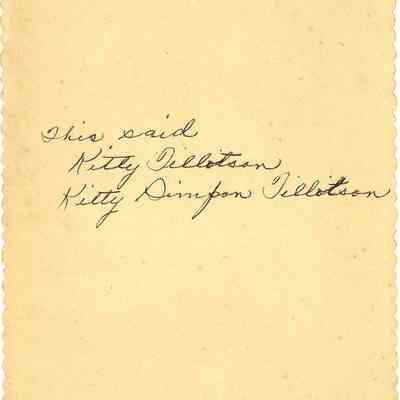 This said
Kitty Tillotson
Kitty Simpson Tillotson